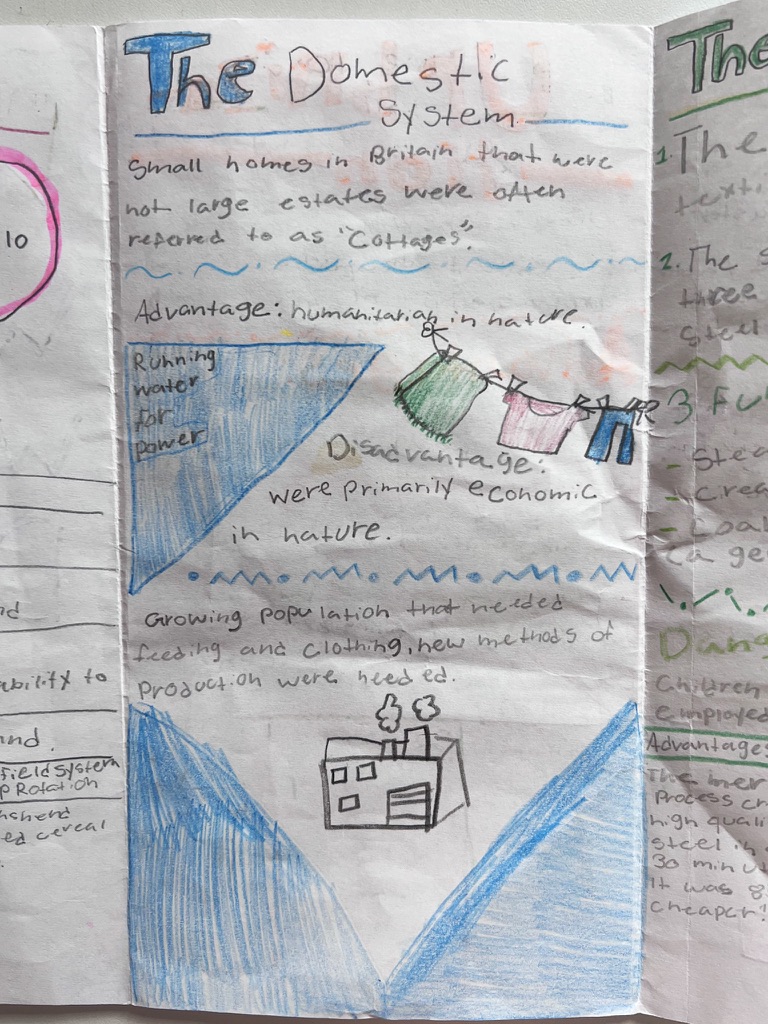 The Domestic
System
Small homes in Britain that were
not large estates were often
referred to as "Cottages".
Advantage: humanitarian in nature.
Running
water
for
power
Disadvantage:
were primarily economic
in nature.
Growing population that needed
feeding and clothing, new methods of
production were needed.
10
ability to
Field System
Rotation
cereal
The
1. The
2. The
three
steel
3
-
-
- Coal
Children
employed
Advantages
Process
high
steel in
30
It was 8
cheaper!